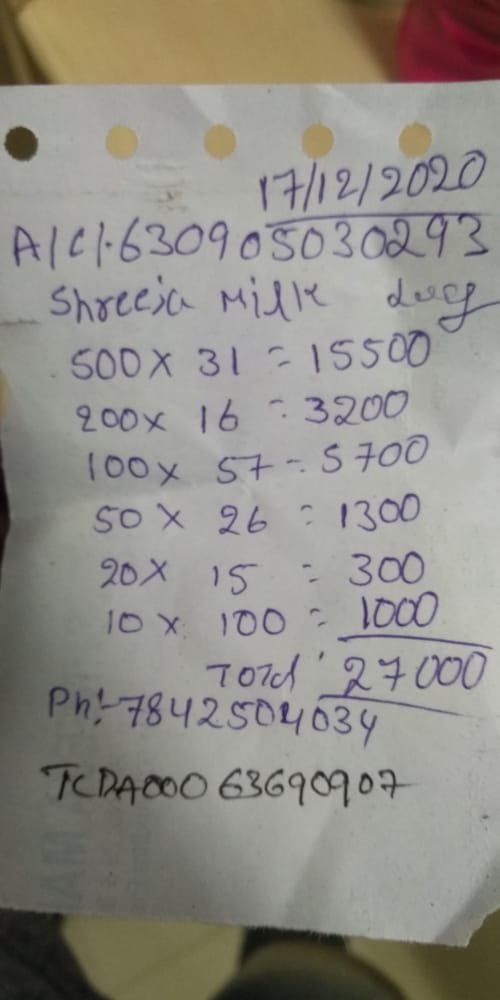 17/12/2020
A/C/.630905030293
Shreeja Milk
500 x 31 = 15500
200 x 16 = 3200
100 x 57 = 5700
50 x 26 = 1300
20 x 15 = 300
10 x 100 = 1000
Total 27000
Ph:-7842504034
TCDA000 63690907